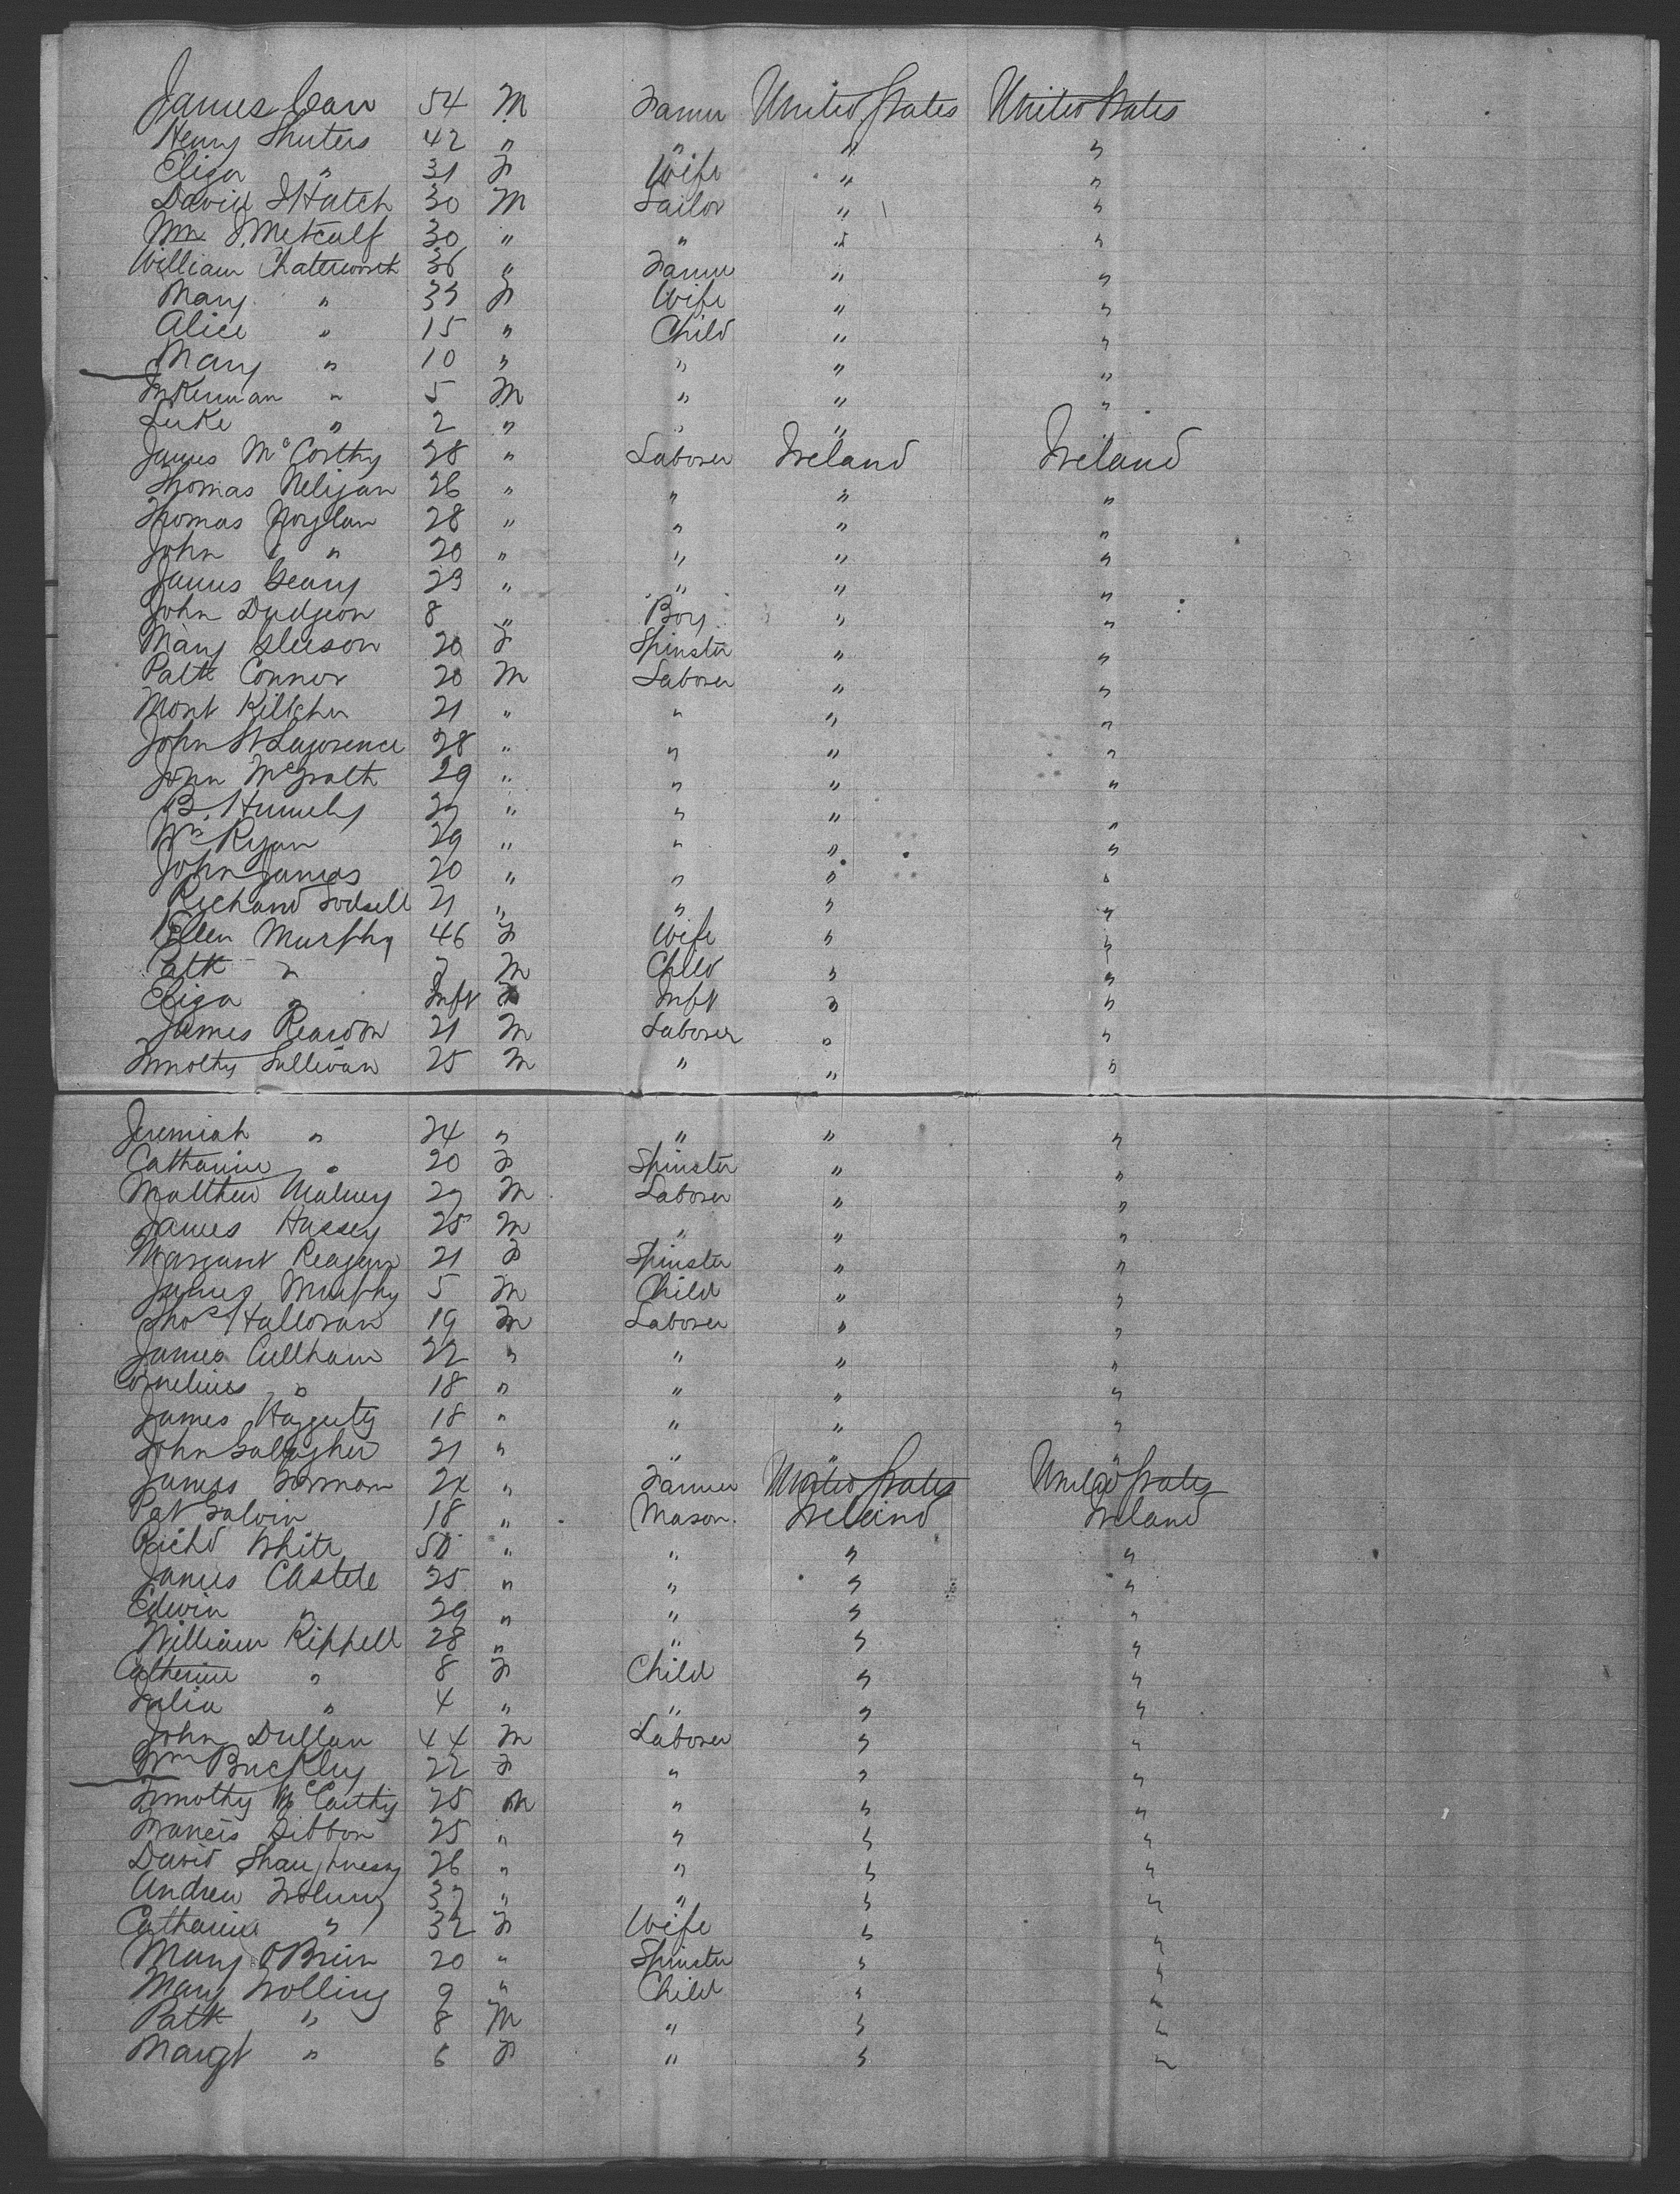 James Carr 54 M Farmer United States United States
Henry Shuters 42 " " " "
Eliza " 31 F Wife " "
David S Hatch 30 M Sailor " "
Wm J. Metcalf 30 " " " "
William Chaterworth 36 " Farmer " "
Mary " 33 F Wife " "
Alice " 15 " Child " "
Mary " 10 " " " "
Inkerman " 5 M " " "
Luke " 2 " " " "
James McCorthy 28 " Laborer Ireland Ireland
Thomas Neligan 26 " " " "
Thomas 28 " " " "
John " 20 " " " "
James Geary 23 " " " "
John Dudgeon 8 " Boy " "
Mary Gleeson 20 F Spinster " "
Patk Connor 20 M Laborer " "
Mont 21 " " " "
John St Lawrence 28 " " " "
John McGrath 29 " " " "
B. " " " "
Wm Ryan 29 " " " "
John James 20 " " " "
Richard 21 " " " "
Ellen Murphy 46 F Wife " "
Patk " M Child " "
Eliza " Inft F Inft " "
James Reardon 21 M Laborer " "
Timothy Sullivan 25 M " " "
Jeremiah " 24 " " " "
Catharine " 20 F Spinster " "
Matthew 27 M Laborer " "
James Hussey 25 M " " "
Margaret Reagan 21 F Spinster " "
James Murphy 5 M Child " "
Thos Halloran 19 M Laborer " "
James Cullham 22 " " " "
Cornelius " 18 " " " "
James Haggerty 18 " " " "
John Gallagher 21 " " " "
James Gorman 24 " Farmer United States United States
Pat Galvin 18 " Mason. Ireland Ireland
Richd White 50 " " " "
James Castele 25 " " " "
Edwin " 29 " " " "
William Kippell 28 " " " "
Catherine " 8 F Child " "
Julia " 4 " " " "
John Dullan 44 M Laborer " "
Wm Buckley 22 F " " "
Timothy McCarthy 25 M " " "
Francis Gibbon 25 " " " "
David Shaughnessy 26 " " " "
Andrew 37 " " " "
Catharine " 32 F Wife " "
Mary OBrien 20 " Spinster " "
Mary 9 " Child " "
Patk " 8 M " " "
Margt " 6 F " " "